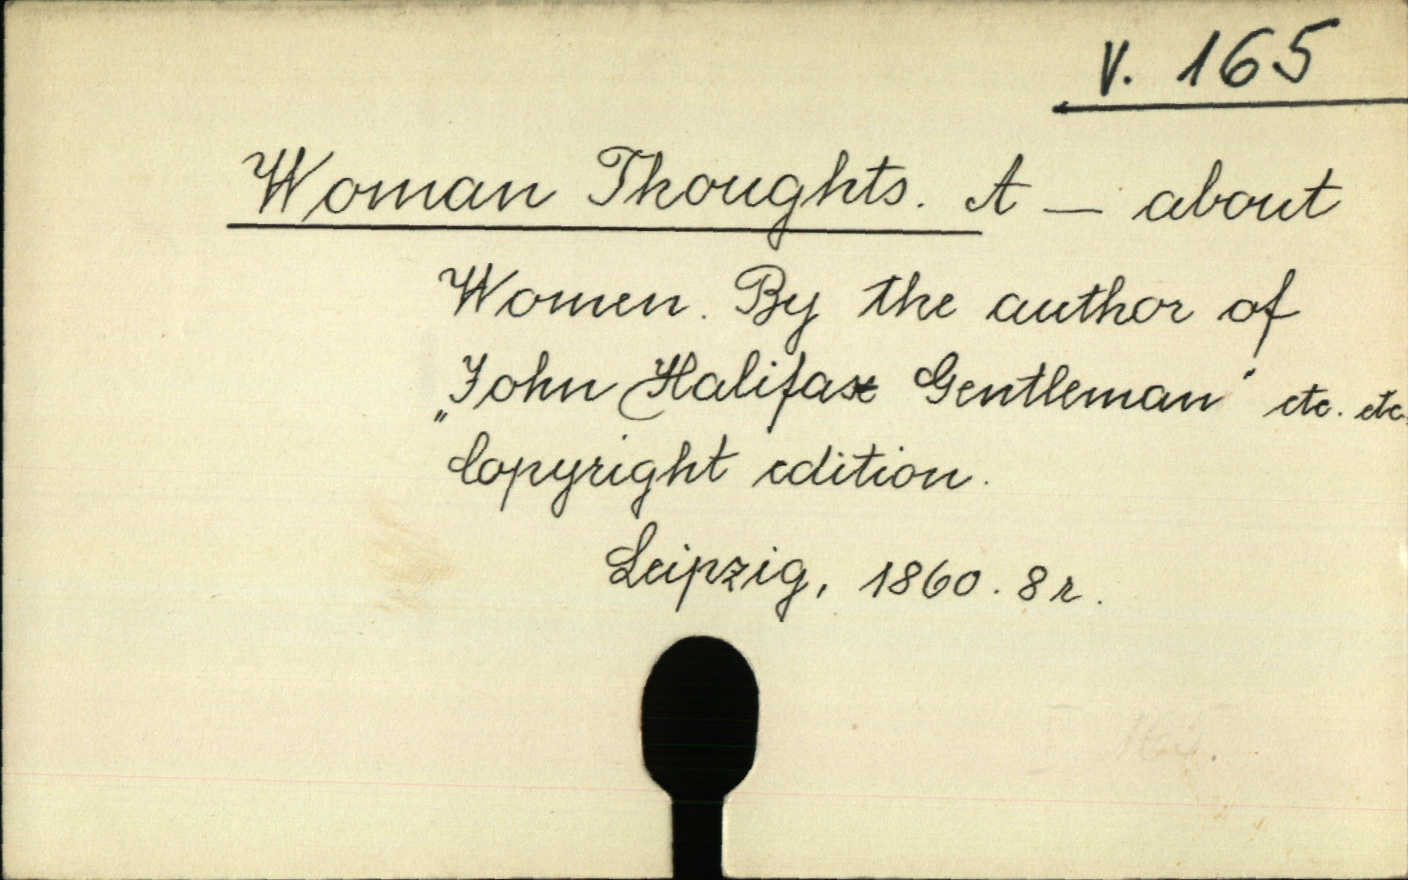 V. 165
Woman Thoughts. A — about
Women. By the author of
„John Halifax Gentleman" etc. etc.
Copyright edition.
Leipzig, 1860. 8r.